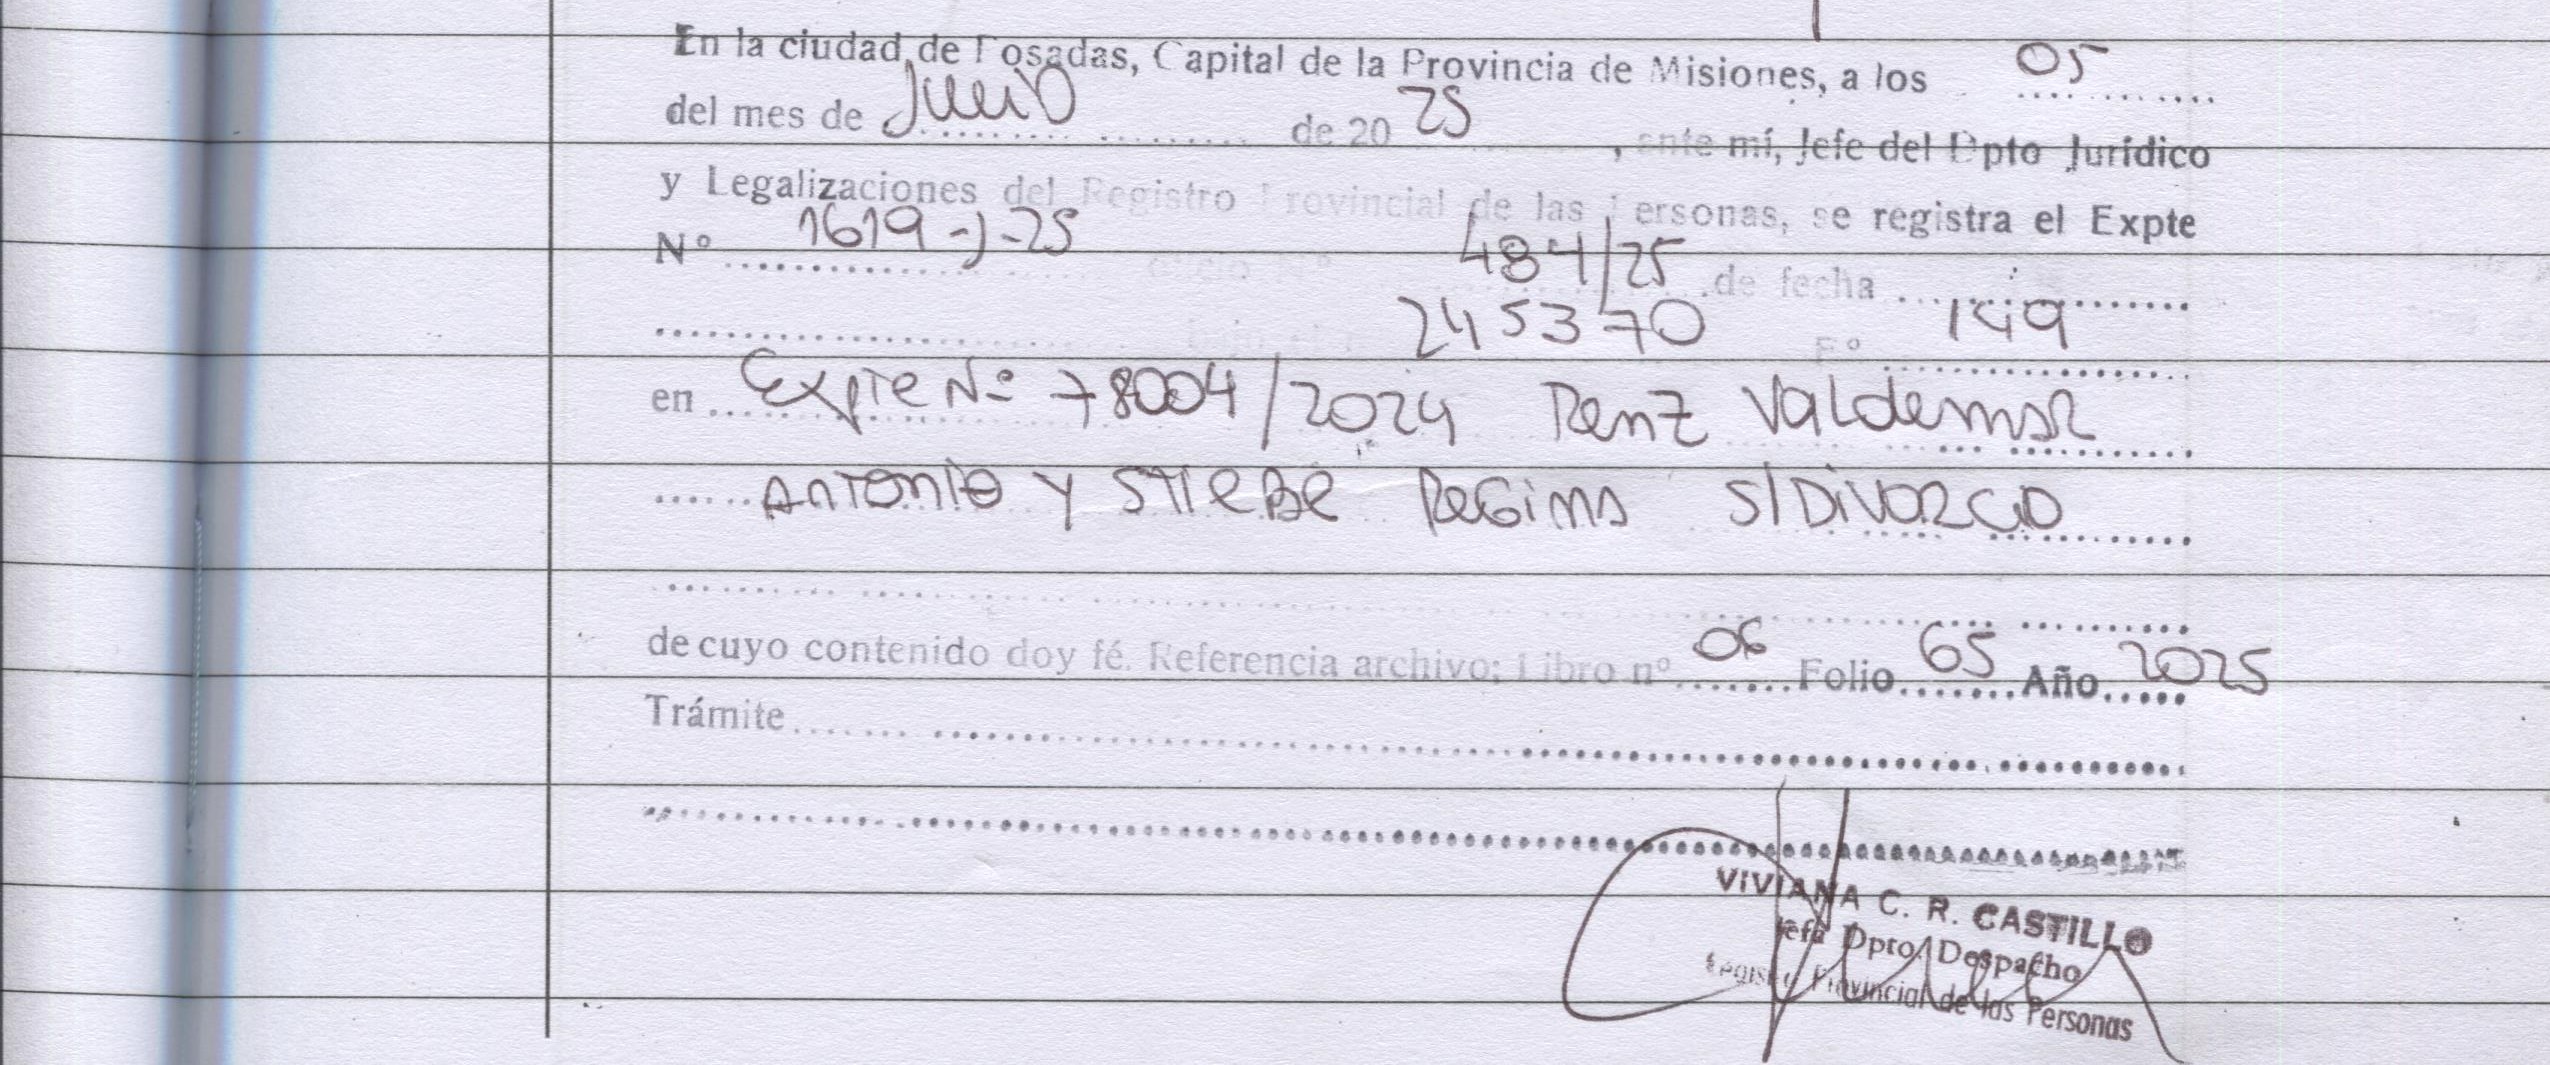 En la ciudad de Posadas, Capital de la Provincia de Misiones, a los 05
del mes de Junio de 2025, ante mí, Jefe del Dpto Jurídico
y Legalizaciones del Registro Provincial de las Personas, se registra el Expte
Nº 1619-J-25 Oficio Nº 484/25 de fecha
245370 Fº 149
en Expte Nº 78004/2024 Renz Valdemar
Antonio y Stiebe Regina S/Divorcio
de cuyo contenido doy fé. Referencia archivo; Libro nº 06 Folio 65 Año 2025
Trámite
VIVIANA C. R. CASTILLO
Jefa Dpto. Despacho
Registro Provincial de las Personas